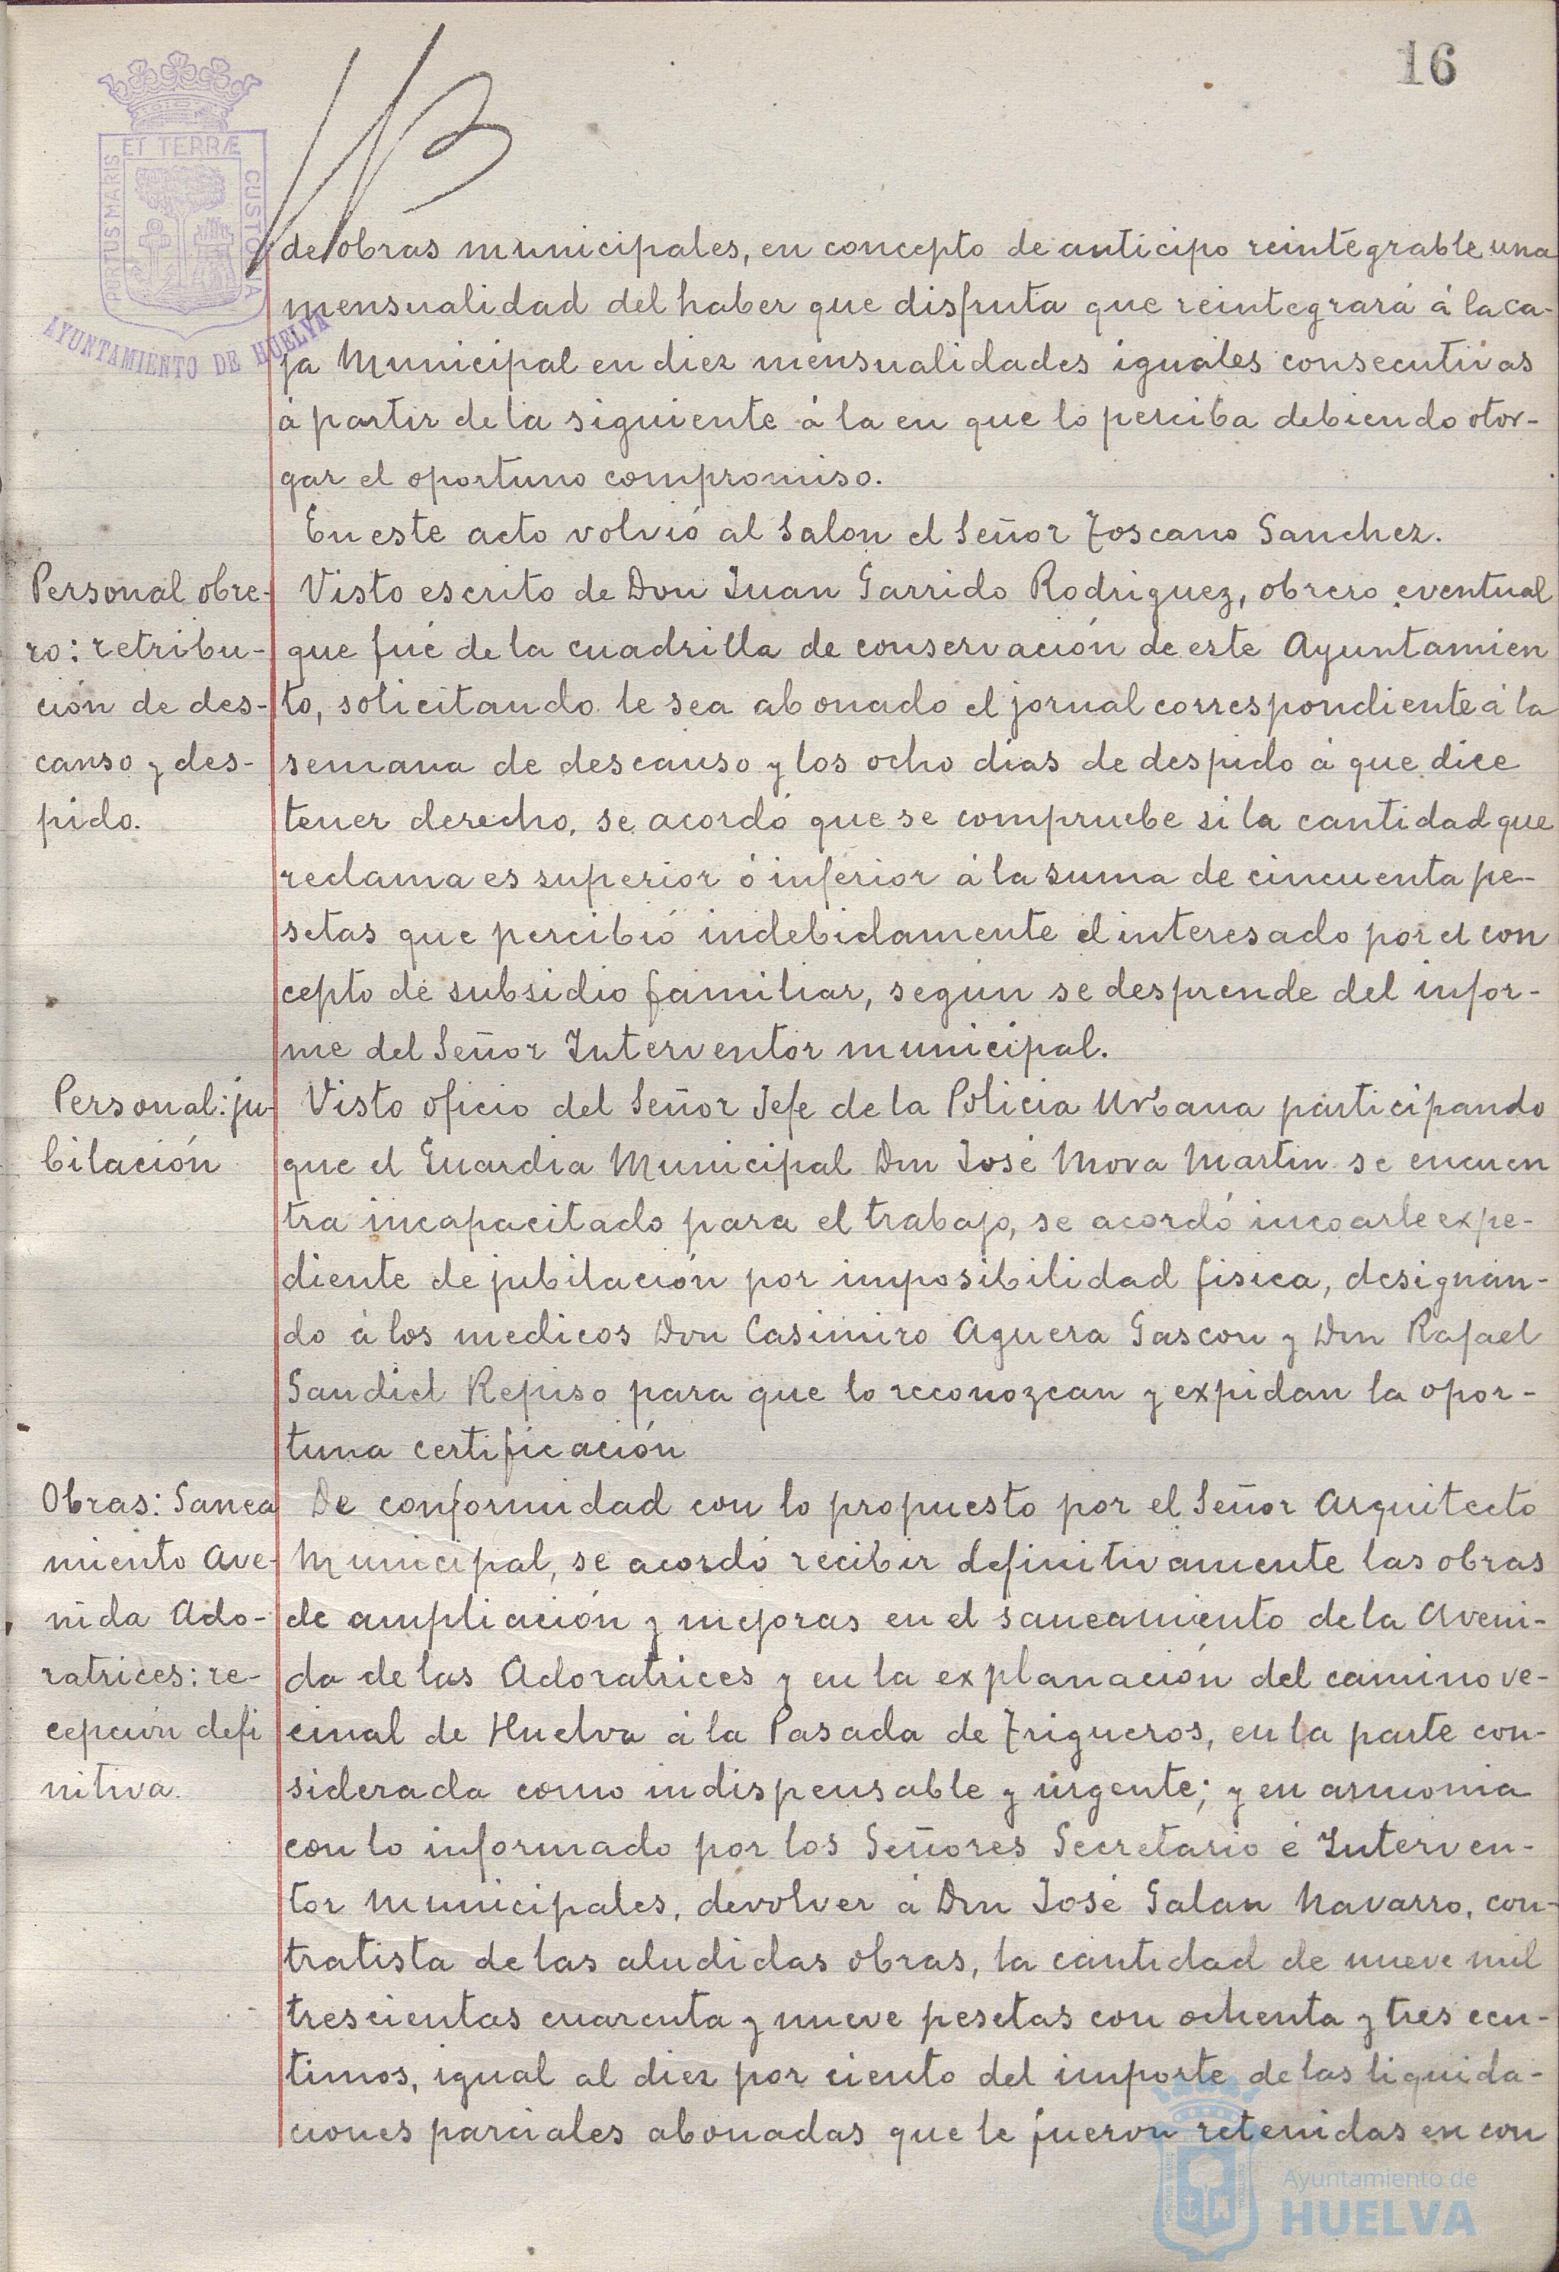 16
PORTUS MARIS
ET TERRÆ
CUSTODIA
AYUNTAMIENTO DE HUELVA
de obras municipales, en concepto de anticipo reintegrable una
mensualidad del haber que disfruta que reintegrará á la ca-
ja Municipal en diez mensualidades iguales consecutivas
á partir de la siguiente á la en que lo perciba debiendo otor-
gar el oportuno compromiso.
En este acto volvió al Salon el Señor Toscano Sanchez.
Personal obre-
ro: retribu-
ción de des-
canso y des-
pido.
Visto escrito de Don Juan Garrido Rodriguez, obrero eventual
que fué de la cuadrilla de conservación de este Ayuntamien
to, solicitando le sea abonado el jornal correspondiente á la
semana de descanso y los ocho dias de despido á que dice
tener derecho, se acordó que se compruebe si la cantidad que
reclama es superior ó inferior á la suma de cincuenta pe-
setas que percibió indebidamente el interesado por el con
cepto de subsidio familiar, según se desprende del infor-
me del Señor Interventor municipal.
Personal: ju-
bilación
Visto oficio del Señor Jefe de la Policia Urbana participando
que el Guardia Municipal Don José Mora Martin se encuen
tra incapacitado para el trabajo, se acordó incoarle expe-
diente de jubilación por imposibilidad fisica, designán-
do á los medicos Don Casimiro Aguera Gascon y Don Rafael
Sandiel Repiso para que lo reconozcan y expidan la opor-
tuna certificación
Obras: Sanea
miento Ave-
nida Ado-
ratrices: re-
cepción defi
nitiva.
De conformidad con lo propuesto por el Señor Arquitecto
Municipal, se acordó recibir definitivamente las obras
de ampliación y mejoras en el saneamiento de la Aveni-
da de las Adoratrices y en la explanación del camino ve-
cinal de Huelva á la Pasada de Trigueros, en la parte con-
siderada como indispensable y urgente; y en armonia
con lo informado por los Señores Secretario é Interven-
tor municipales, devolver á Don José Galan Navarro, con-
tratista de las aludidas obras, la cantidad de nueve mil
trescientas cuarenta y nueve pesetas con ochenta y tres cen-
timos, igual al diez por ciento del importe de las liquida-
ciones parciales abonadas que le fueron retenidas en con
Ayuntamiento de
HUELVA